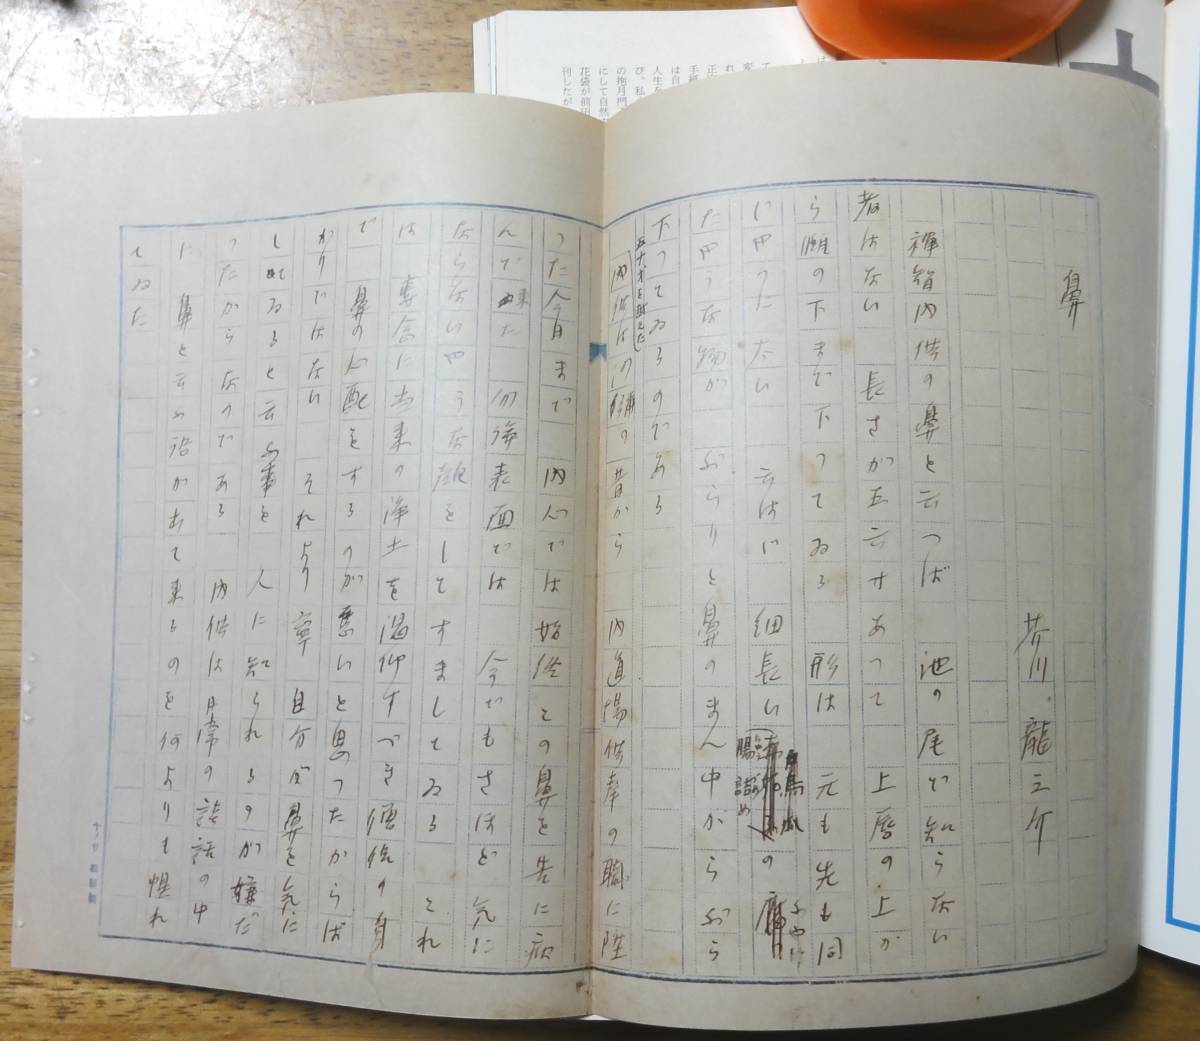 鼻
芥川龍之介
禅智内供の鼻と云つば 池の尾で知らない
者はない 長さが五六寸あつて 上唇の上か
ら顋の下まで下つてゐる 形は元も先も同
じやうに太い 云はば 細長い腸詰め
たやうな物が ぶらりと鼻のまん中からぶら
下つてゐるのである
五十才を越えた
内供はの昔から 内道場供奉の職に陞
つた今日まで 内心では始終この鼻を苦に病
んで来た 勿論表面では 今でもさほど気に
ならないやうな顔をしてすましてゐる これ
は専念に当来の浄土を渇仰すべき僧侶の身
で 鼻の心配をするのが悪いと思つたからば
かりではない それより寧 自分が鼻を気に
してゐると云ふ事を 人に知られるのが嫌だ
つたからなのである 内供は日常の談話の中
に 鼻と云ふ語が出て来るのを何よりも惧れ
てゐた
十ノ廿 松屋製